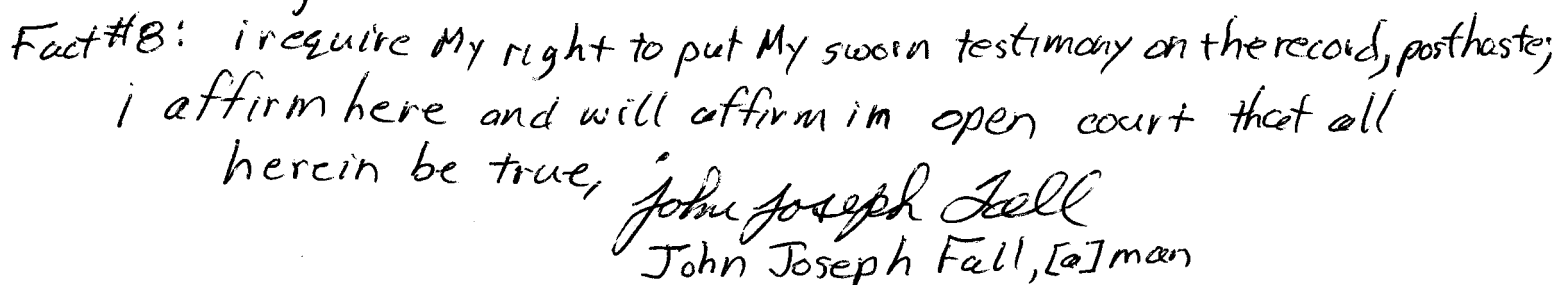 Fact#8: i require My right to put My sworn testimony on the record, posthaste;
i affirm here and will affirm in open court that all
herein be true,
John Joseph Fall
John Joseph Fall, [a] man